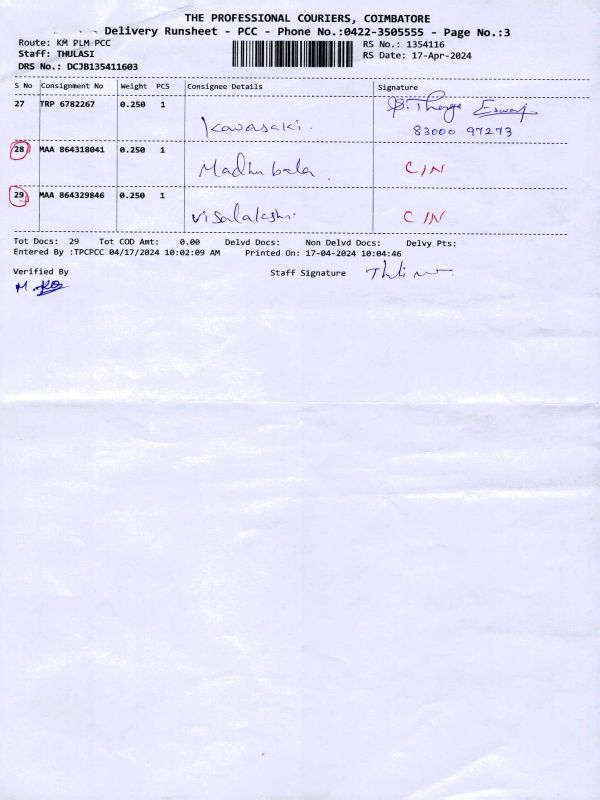 THE PROFESSIONAL COURIERS, COIMBATORE
Delivery Runsheet - PCC - Phone No.:0422-3505555 - Page No.:3
Route: KM PLM PCC
RS No.: 1354116
Staff: THULASI
RS Date: 17-Apr-2024
DRS No.: DCJB135411603
S No Consignment No Weight PCS Consignee Details Signature
27 TRP 6782267 0.250 1 Kawasaki. Eswari
83000 97273
28 MAA 864318041 0.250 1 Madhu bala. C/N
29 MAA 864329846 0.250 1 visalakshi C/N
Tot Docs: 29 Tot COD Amt: 0.00 Delvd Docs: Non Delvd Docs: Delvy Pts:
Entered By :TPCPCC 04/17/2024 10:02:09 AM Printed On: 17-04-2024 10:04:46
Verified By Staff Signature